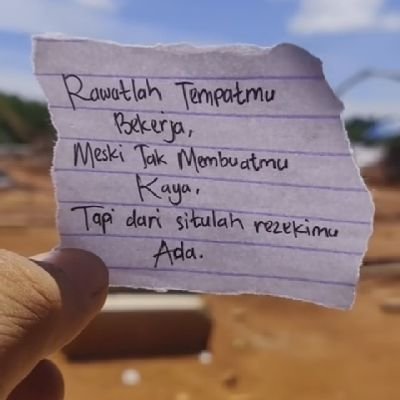 Rawatlah Tempatmu
Bekerja,
Meski Tak Membuatmu
Kaya,
Tapi dari situlah rezekimu
Ada.